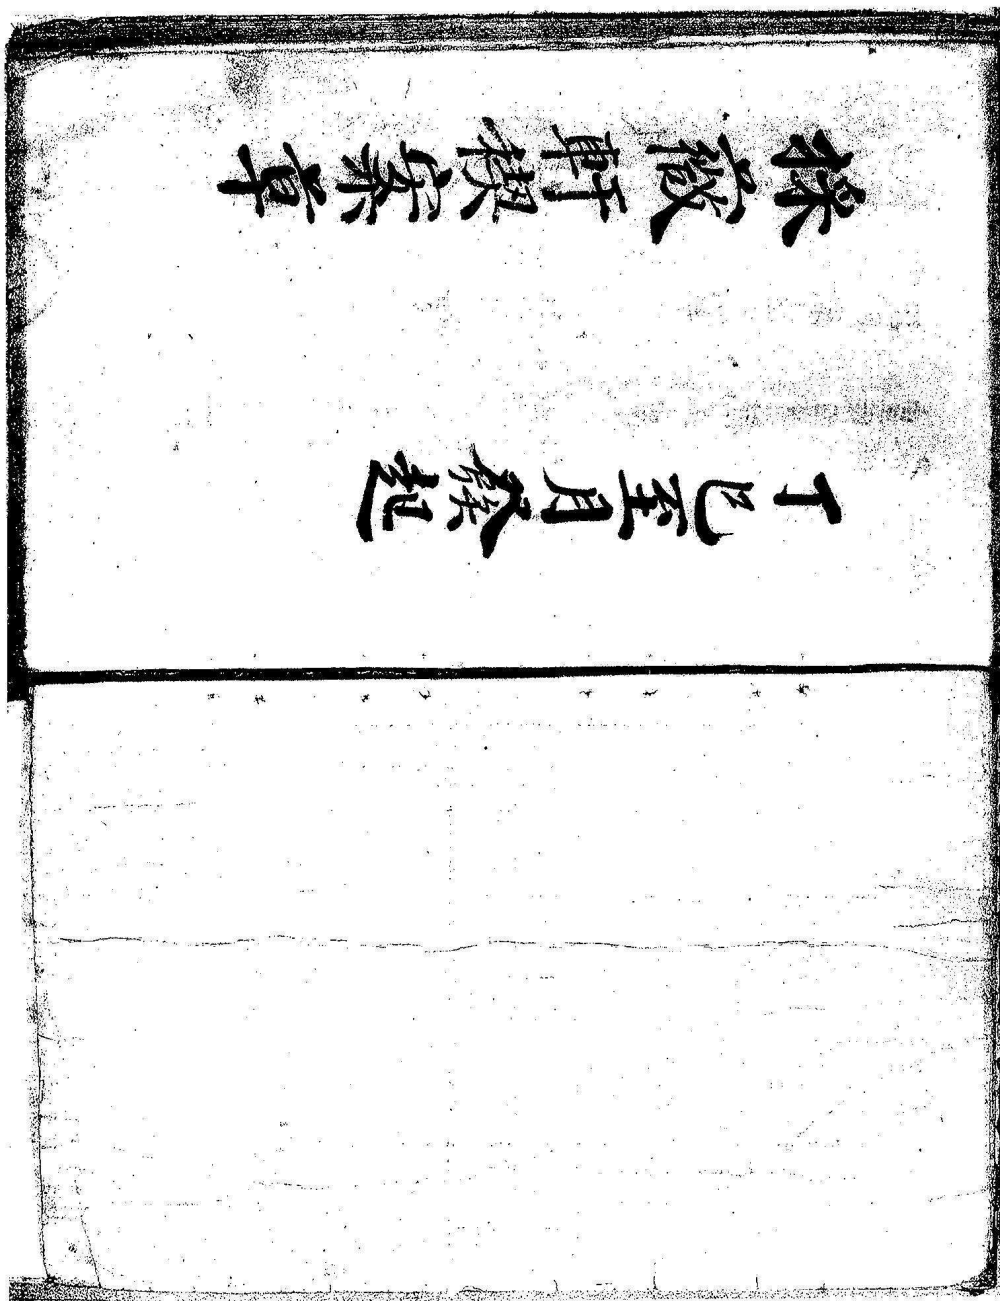 採薇軒案草
丁巳至月發起